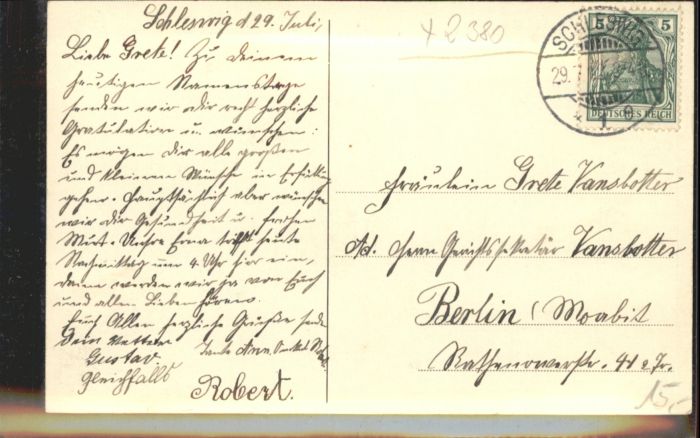 Schleswig d 29. Juli,
Liebe Grete! Zu deinem
heutigen Namenstage
senden wir dir recht herzliche
Gratulation u. wünschen:
Es mögen dir alle großen
und kleinen Wünsche in Erfüllung
gehen. Hauptsächlich aber wünschen
wir dir Gesundheit u. frohen
Mut. Unsre Erna trifft heute
Nachmittag um 4 Uhr hier ein,
dann werden wir ja von Euch
und allen Lieben hören.
Euch Allen herzliche Grüße sendet
dein Vetter
Gustav.
Tante Anna, Onkel
gleichfalls
Robert.
x 2380
SCHLESWIG
29.7
5 5
DEUTSCHES REICH
Fräulein Grete Vansbotter
Ad. Herrn Gerichtssekretär Vansbotter
Berlin (Moabit
Rathenowerstr. 41 a Tr.
15,-